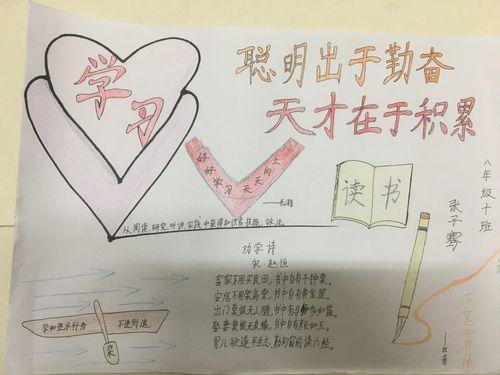 学习
聪明出于勤奋
天才在于积累
好好学习 天天向上
读书
八年级十班
张子骞
从阅读、研究、听讲、实践中获得知识或技能、认法。
劝学诗
宋 赵恒
富家不用买良田,书中自有千钟粟。
安居不用架高堂,书中自有黄金屋。
出门莫恨无人随,书中车马多如簇。
娶妻莫恨无良媒,书中自有颜如玉。
男儿欲遂平生志,勤向窗前读六经。
学如逆水行舟
不进则退
桨
下笔如有神
——杜甫